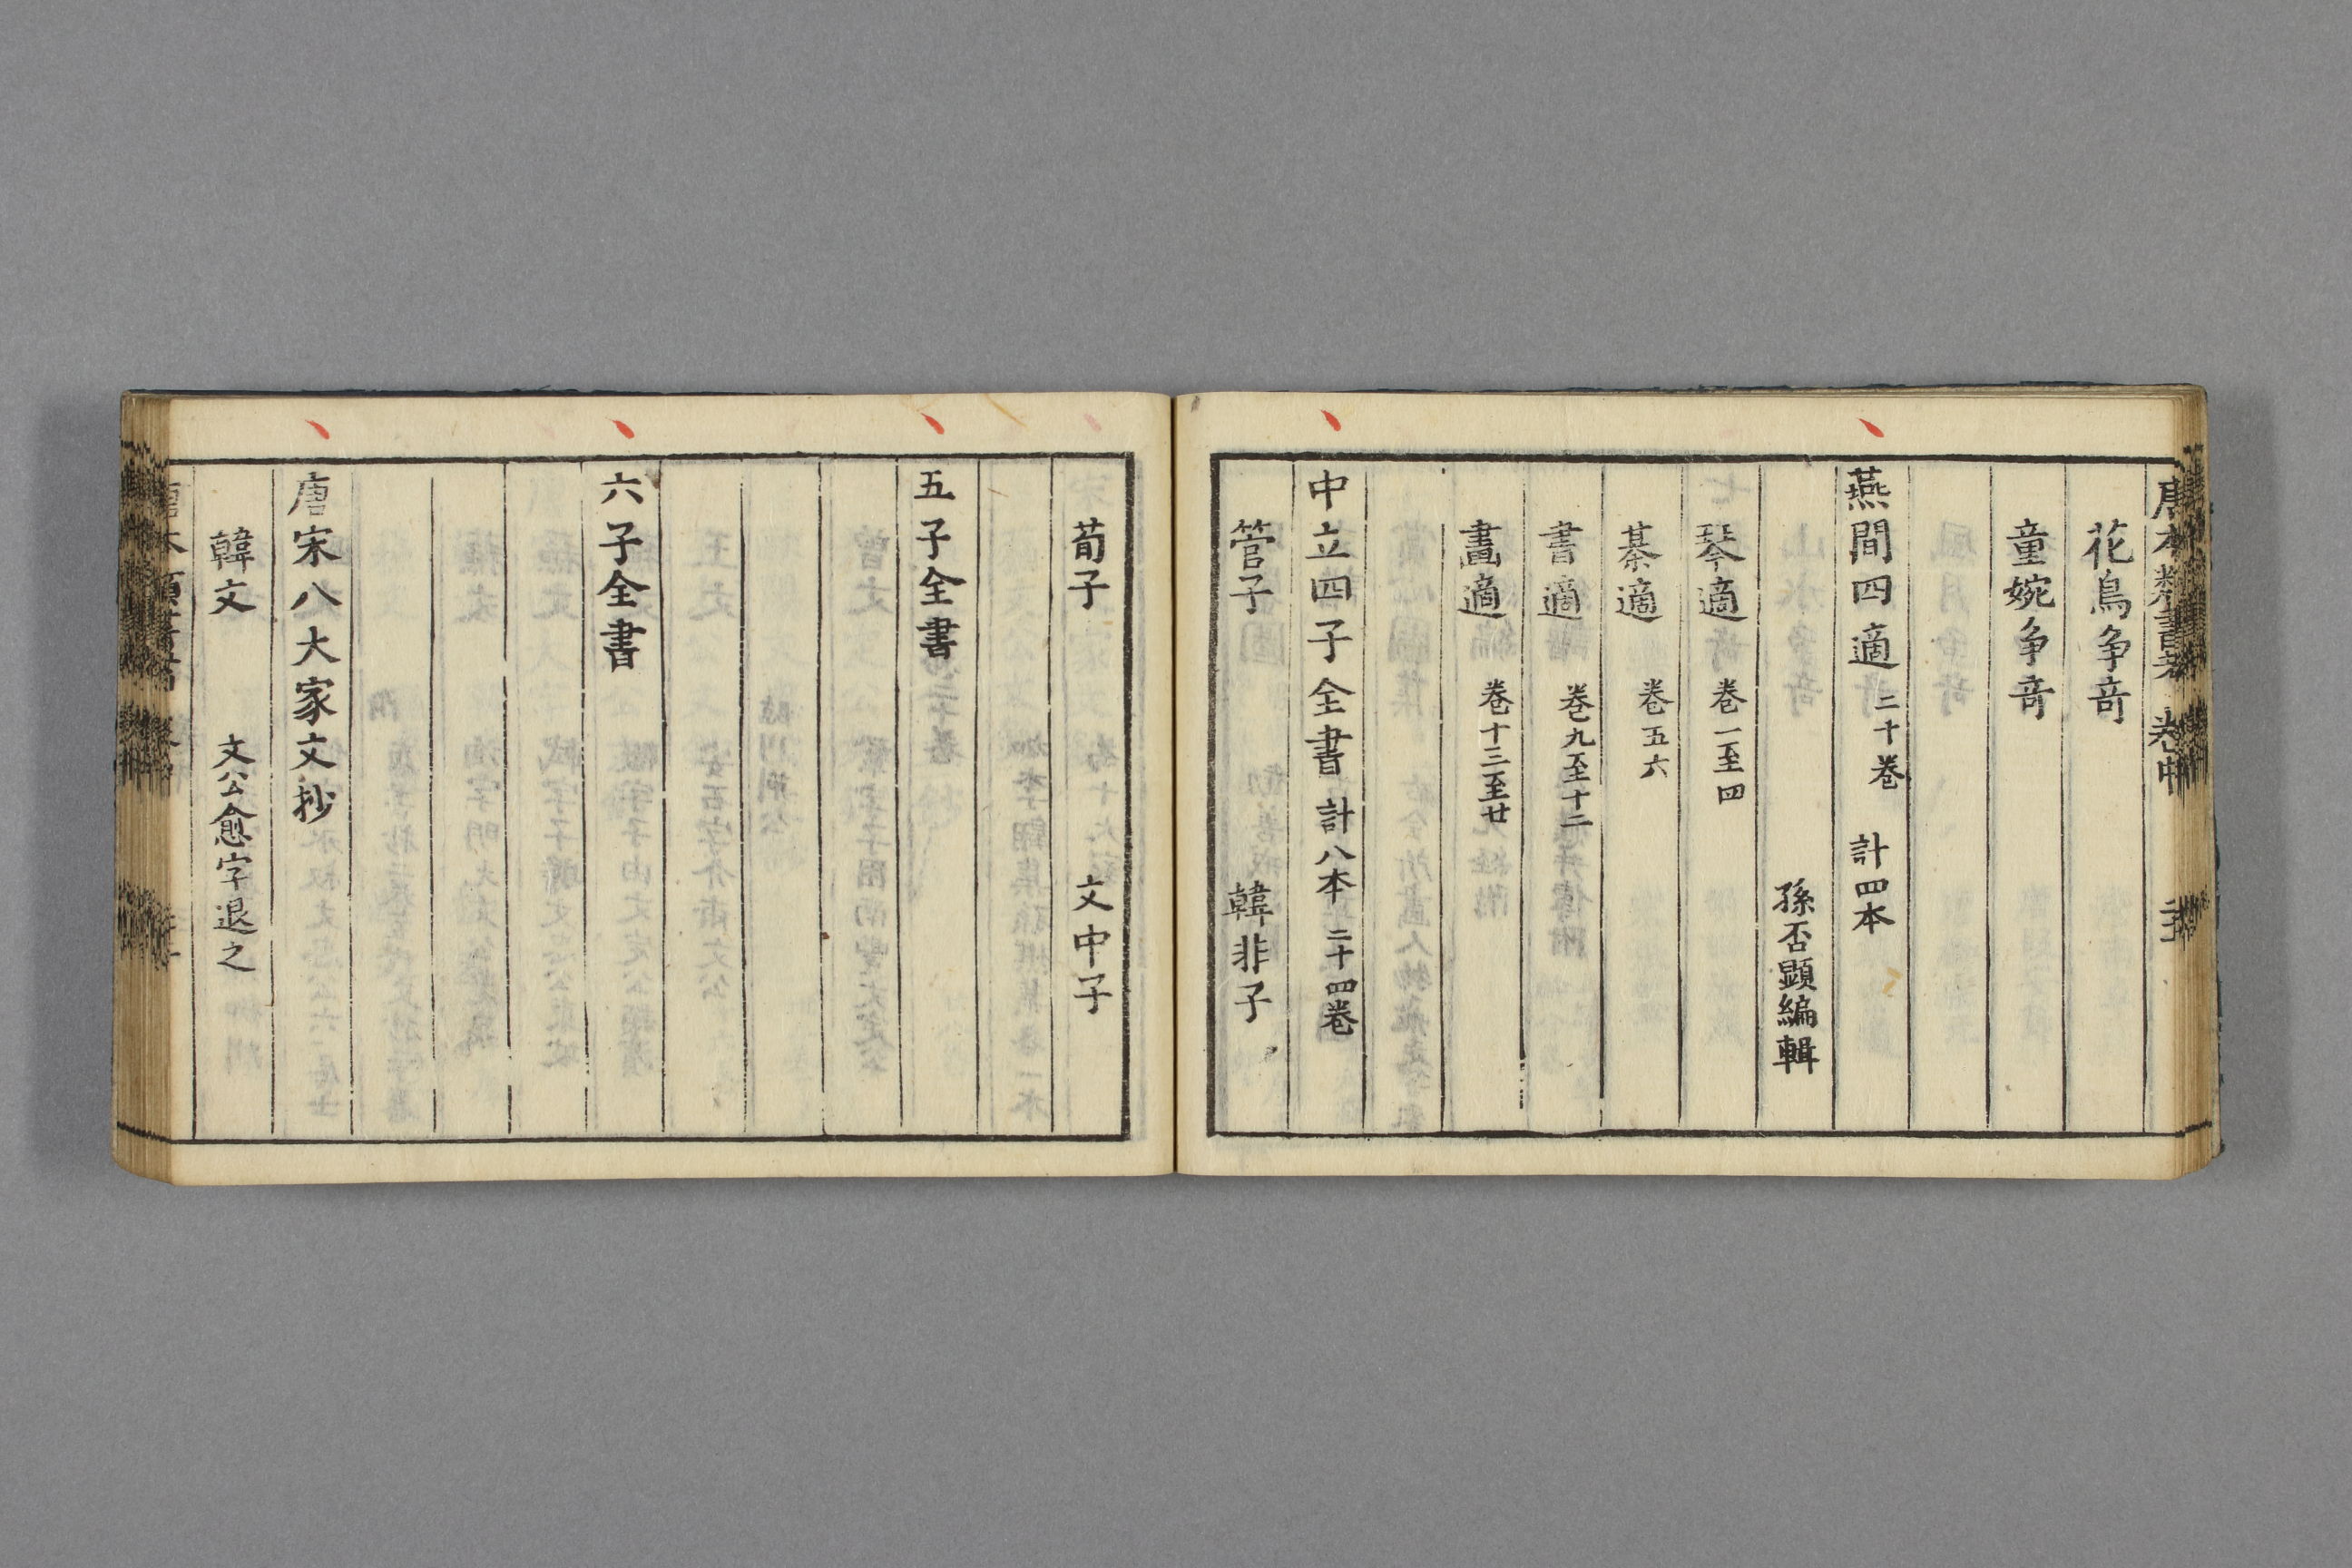 唐本類書考 卷中
花鳥争奇
童婉争奇
燕間四適 二十卷 計四本
孫否顕編輯
琴適 卷一至四
棊適 卷五六
書適 卷九至十二
畫適 卷十三至廿
中立四子全書 計八本 二十四卷
管子 韓非子
荀子 文中子
五子全書
六子全書
唐宋八大家文抄
韓文 文公愈字退之